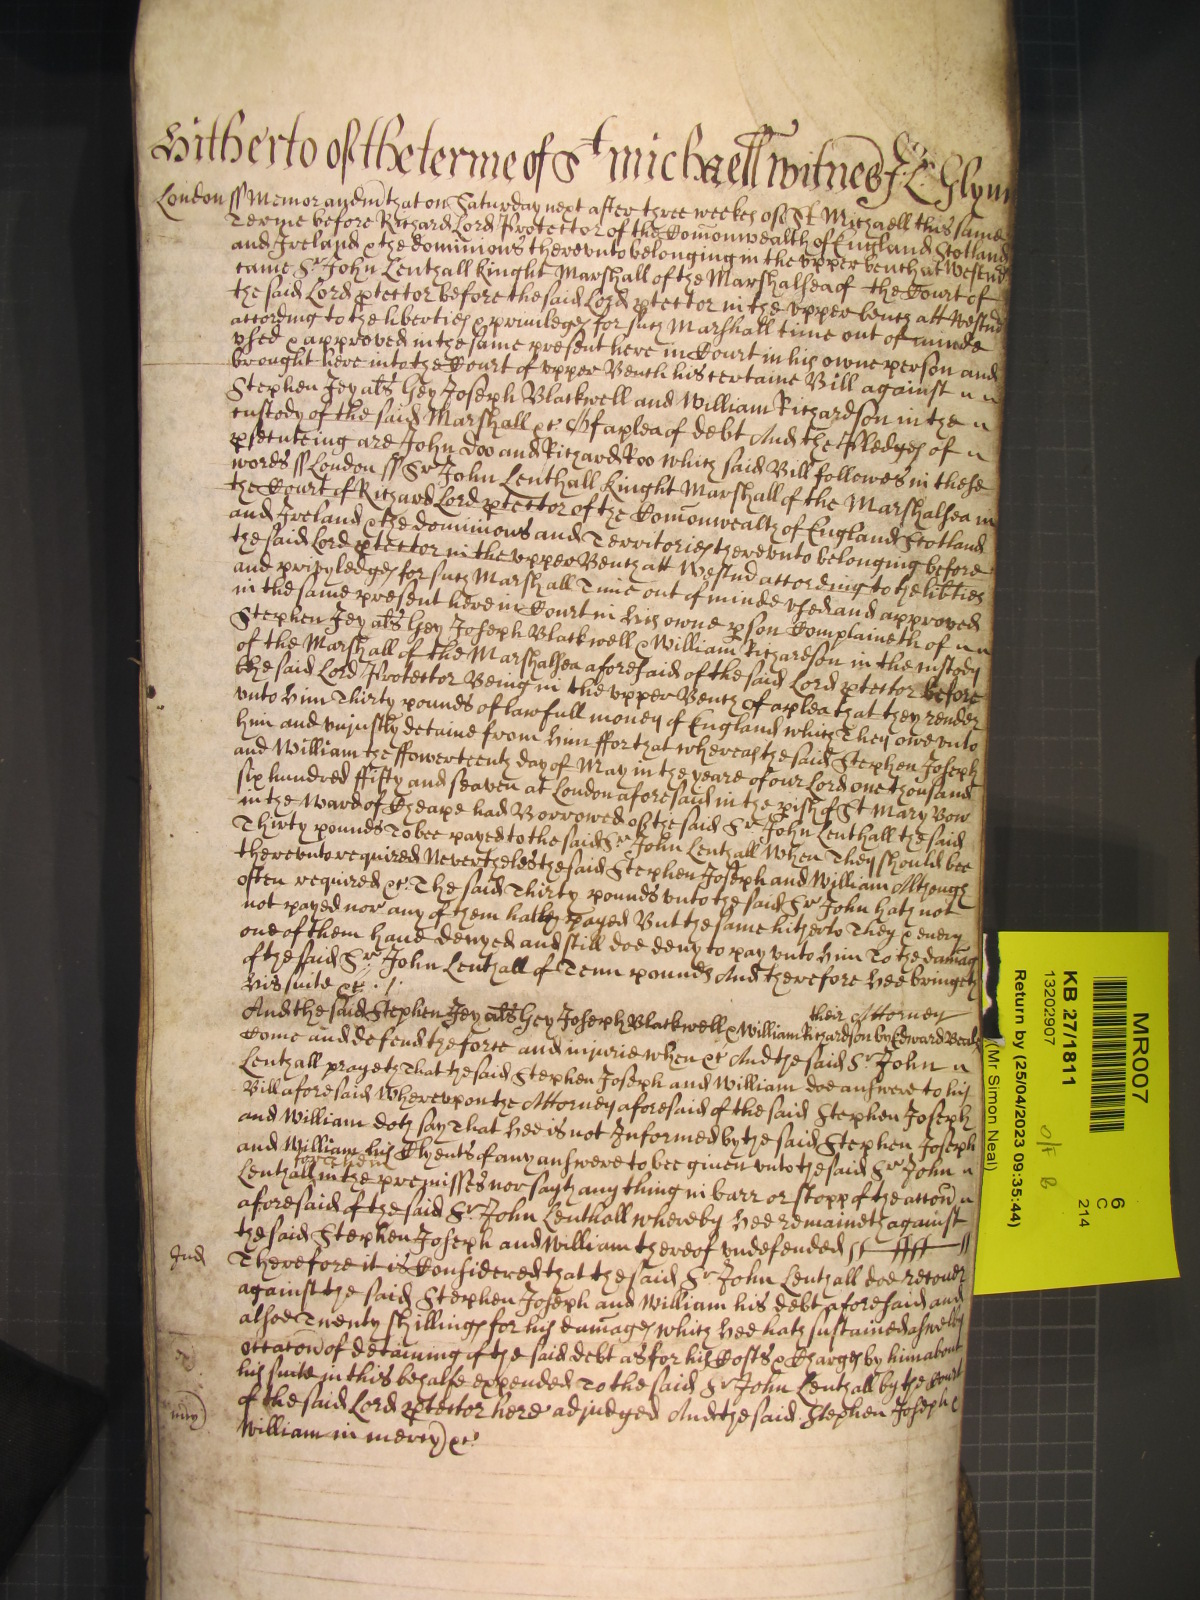 Hitherto of the terme of St Michaell witnes J: Glynn
London ss Memorandum that on Saturday next after three weekes of St Michaell this same
Terme before Richard Lord Protector of the Comonwealth of England Scotland
and Ireland & the dominions therevnto belonging in the vpper bench at Westmr
came Sr John Lenthall Knight Marshall of the Marshalsea of the Court of
the said Lord ptector before the said Lord ptector in the vpper bench att Westmr
according to the liberties & priviledges for such Marshall time out of minde
vsed & approved in the same present here in Court in his owne person and
brought here into the Court of vpper Bench his certaine Bill against
Stephen Jey als Gey Joseph Blackwell and William Richardson in the
custody of the said Marshall &c Of a plea of debt And the Pledges of
psecuteing are John Doo and Richard Roo which said Bill followes in these
words ss London ss Sr John Lenthall Knight Marshall of the Marshalsea in
the Court of Richard Lord ptector of the Comonwealth of England Scotland
and Ireland & the dominions and Territories therevnto belonging before
the said Lord ptector in the vpper Bench att Westmr according to the libties
and priviledges for such Marshall Time out of minde vsed and approved
in the same present here in Court in his owne pson Complaineth of
Stephen Jey als Gey Joseph Blackwell & William Richardson in the custody
of the Marshall of the Marshalsea aforesaid of the said Lord ptector before
the said Lord Protector Being in the vpper Bench of a plea that they render
vnto him Thirty pounds of lawfull money of England which They owe vnto
him and vniustly detaine from him ffor that whereas the said Stephen Joseph
and William the ffowerteenth day of May in the yeare of our Lord one thousand
six hundred ffifty and seaven at London aforesaid in the pish of St Mary Bow
in the Ward of Cheape had Borrowed of the said Sr John Lenthall the said
Thirty pounds To bee payed to the said Sr John Lenthall When They should bee
therevnto required Nevertheles the said Stephen Joseph and William Although
often required &c The said Thirty pounds vnto the said Sr John hath not
not payed nor any of them hath payed But the same hitherto They & every
one of them have denyed and still doe deny to pay vnto him To the damag
of the said Sr John Lenthall of Tenn pounds And therefore hee bringeth
his suite &c
And the said Stephen Jey als Gey Joseph Blackwell & William Richardson by Edward Beal their Attorney
Come and defend the force and iniurie when &c And the said Sr John
Lenthall prayeth That the said Stephen Joseph and William doe answere to his
Bill aforesaid Wherevpon the Attorney aforesaid of the said Stephen Joseph
and William doth say That hee is not Informed by the said Stephen Joseph
and William his Clyents of any answere to bee given vnto the said Sr John
for them
Lenthall in the premisses nor sayth any thing in barr or stopp of the accon
aforesaid of the said Sr John Lenthall whereby hee remaineth against
the said Stephen Joseph and William thereof vndefended
Jud Therefore it is Considered that the said Sr John Lenthall doe recover
against the said Stephen Joseph and William his debt aforesaid and
alsoe Twenty shillings for his damages which hee hath sustained aswell by
occacon of detaining of the said debt as for his Costs & Charges by him about
his suite in this behalfe expended To the said Sr John Lenthall by the Court
of the said Lord ptector here adiudged And the said Stephen Joseph &
mcy William in mercy &c
MR007
KB 27/1811
13202907
Return by (25/04/2023 09:35:44)
(Mr Simon Neal)
6
C
214